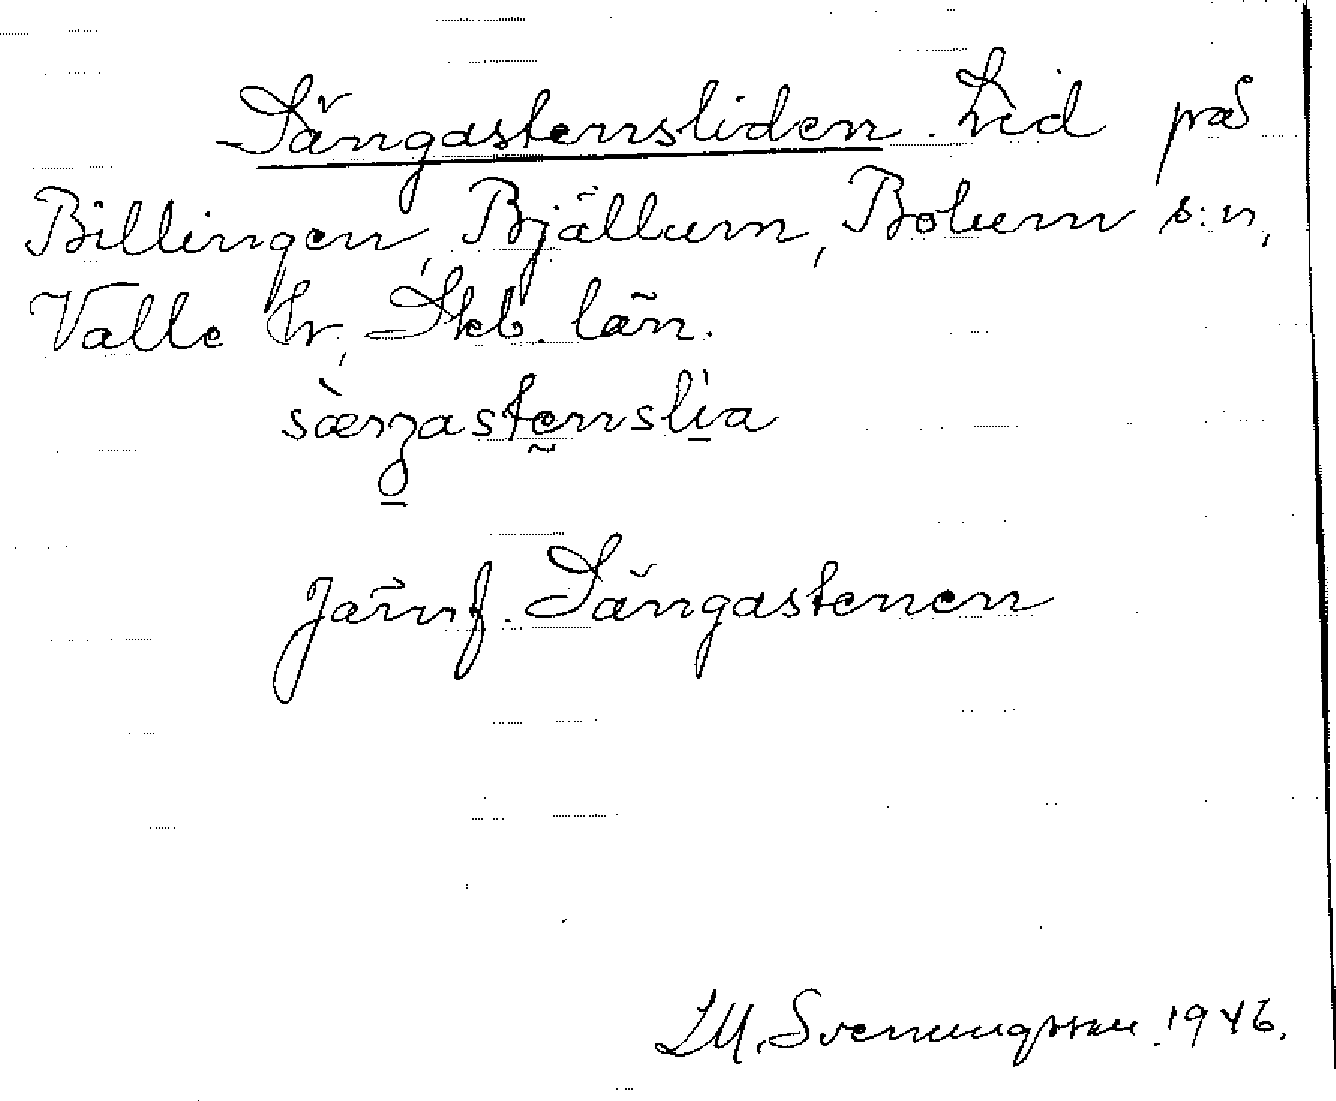 Sängastensliden. Lid på
Billingen, Bjällum, Bolum s:n,
Valle hr, Skb. län.
sæŋgastensli̱a
Jämf. Sängastenen
LM. Svenungsson 1946.